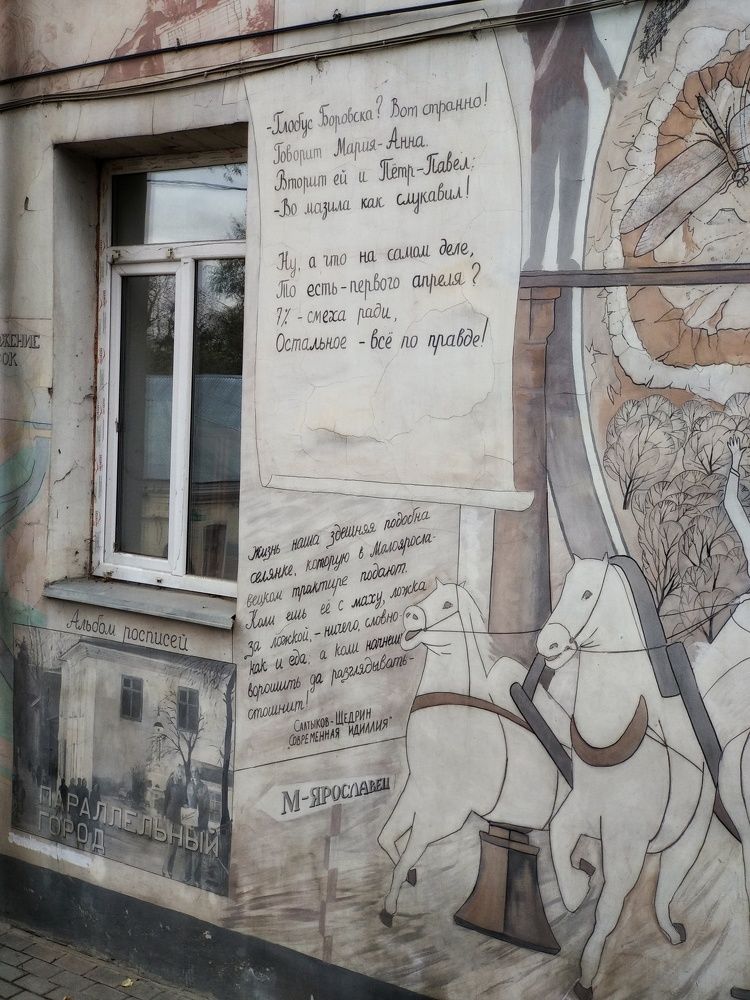 -Глобус Боровска? Вот странно!
Говорит Мария-Анна.
Вторит ей и Пётр-Павел:
-Во мазила как слукавил!
Ну, а что на самом деле,
То есть-первого апреля?
7% - смеха ради,
Остальное - всё по правде!
ЖЕНИЕ
ОК
Жизнь наша здешняя подобна
селянке, которую в Малояросла-
вецком трактире подают.
Коли ешь её с маху, ложка
за ложкой, - ничего, словно-
как и еда; а коли начнешь
ворошить да разглядывать-
стошнит!
Салтыков-Щедрин
"Современная идиллия"
Альбом росписей
ПАРАЛЛЕЛЬНЫЙ
ГОРОД
М-ЯРОСЛАВЕЦ